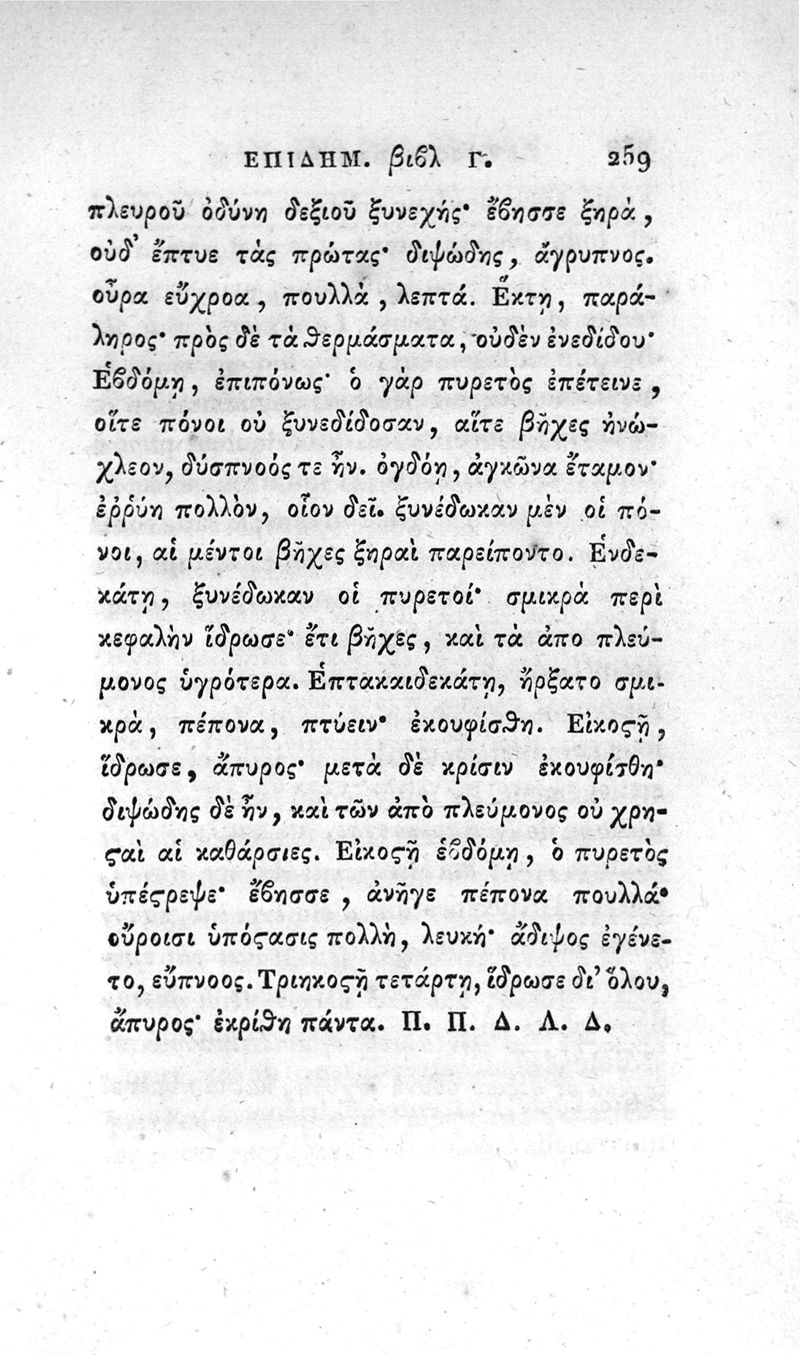 ΕΠΙΔΗΜ. βιβλ Γ. 259
πλευροῦ ὀδύνη δεξιοῦ ξυνεχής· ἔβησσε ξηρὰ,
οὐδ᾽ ἔπτυε τὰς πρώτας· διψώδης, ἄγρυπνος.
οὖρα εὔχροα, πουλλὰ, λεπτά. Ἕκτῃ, παρά-
ληρος· πρὸς δὲ τὰ θερμάσματα, οὐδὲν ἐνεδίδου·
Ἑβδόμῃ, ἐπιπόνως· ὁ γὰρ πυρετὸς ἐπέτεινε,
οἵτε πόνοι οὐ ξυνεδίδοσαν, αἵτε βῆχες ἠνώ-
χλεον, δύσπνοός τε ἦν. ὀγδόῃ, ἀγκῶνα ἔταμον·
ἐῤῥύη πολλὸν, οἷον δεῖ. ξυνέδωκαν μὲν οἱ πό-
νοι, αἱ μέντοι βῆχες ξηραὶ παρείποντο. Ἑνδε-
κάτῃ, ξυνέδωκαν οἱ πυρετοί· σμικρὰ περὶ
κεφαλὴν ἵδρωσε· ἔτι βῆχες, καὶ τὰ ἀπο πλεύ-
μονος ὑγρότερα. Ἑπτακαιδεκάτῃ, ἤρξατο σμι-
κρὰ, πέπονα, πτύειν· ἐκουφίσθη. Εἰκοϛῇ,
ἵδρωσε, ἄπυρος· μετὰ δὲ κρίσιν ἐκουφίσθη·
διψώδης δὲ ἦν, καὶ τῶν ἀπὸ πλεύμονος οὐ χρη-
ϛαὶ αἱ καθάρσιες. Εἰκοϛῇ ἑβδόμῃ, ὁ πυρετὸς
ὑπέϛρεψε· ἔβησσε, ἀνῆγε πέπονα πουλλά·
οὔροισι ὑπόϛασις πολλὴ, λευκή· ἄδιψος ἐγένε-
το, εὔπνοος. Τριηκοϛῇ τετάρτῃ, ἵδρωσε δι᾽ ὅλου,
ἄπυρος· ἐκρίθη πάντα. Π. Π. Δ. Λ. Δ.